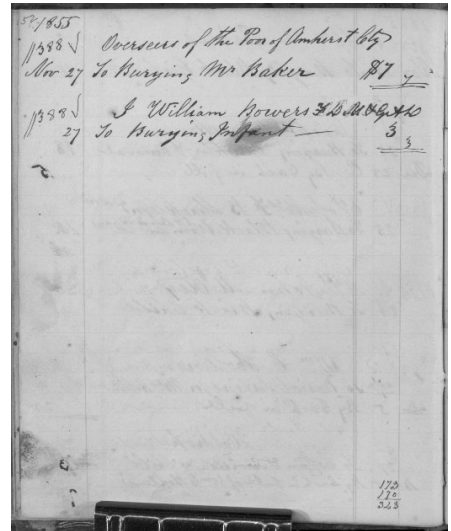 1855
388 Overseers of the Poor of Amherst Cty
Nov 27 To Burying Mr Baker $7
7
388 J William Bowers
27 To Burying Infant — 3
3
173
323